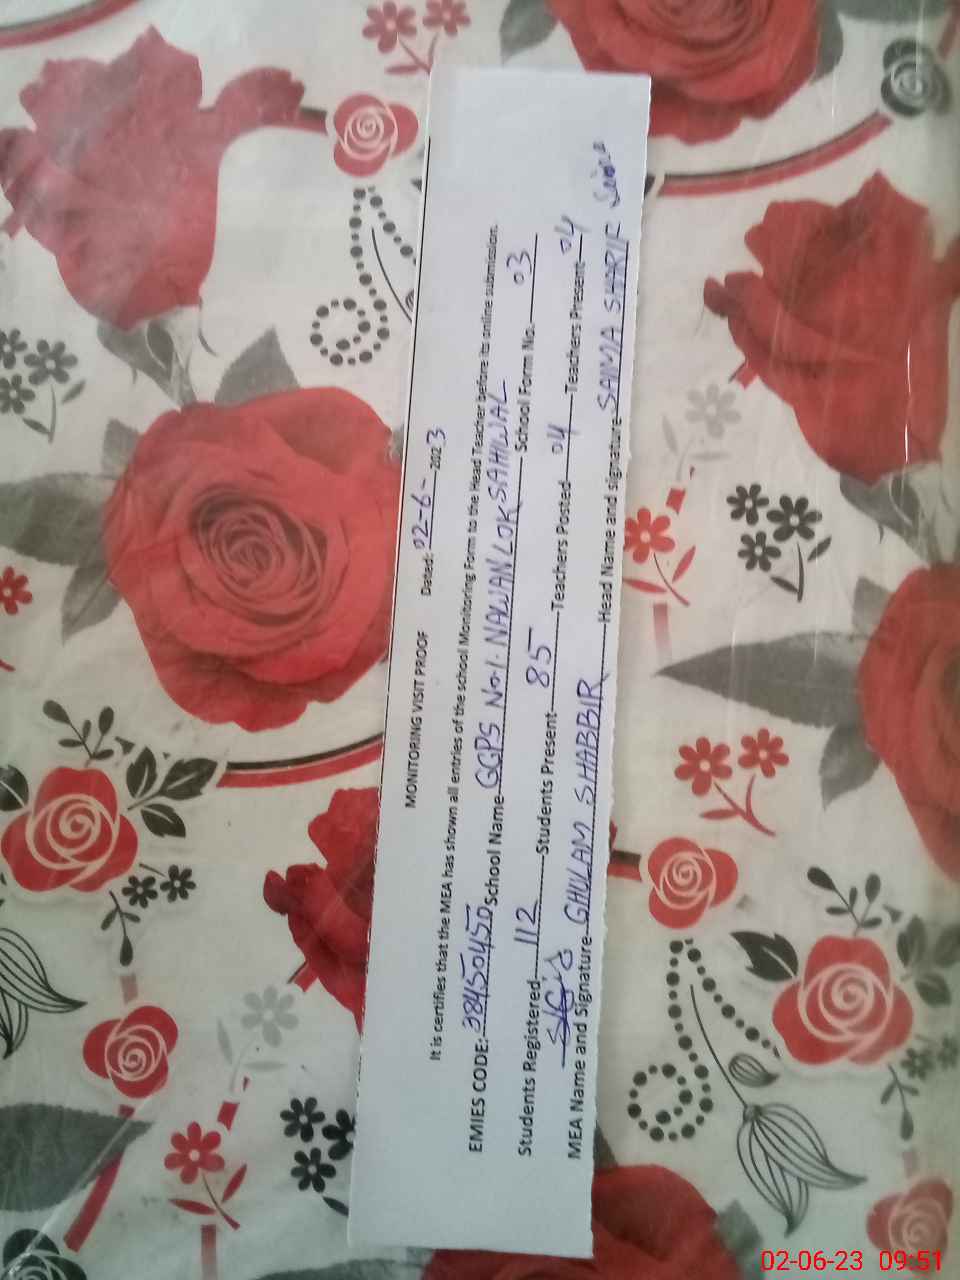 MONITORING VISIT PROOF Dated: 02-6-2023
It is certifies that the MEA has shown all entries of the school Monitoring Form to the Head Teacher before its online submission.
EMIES CODE:- 38450450 School Name GGPS No.1. NAWAN LOK SAHIWAL
Students Registered 112 Students Present 85 Teachers Posted 04 Teachers Present 04 School Form No. 03
MEA Name and Signature GHULAM SHABBIR Head Name and signature SAMIA SHARIF
02-06-23 09:51